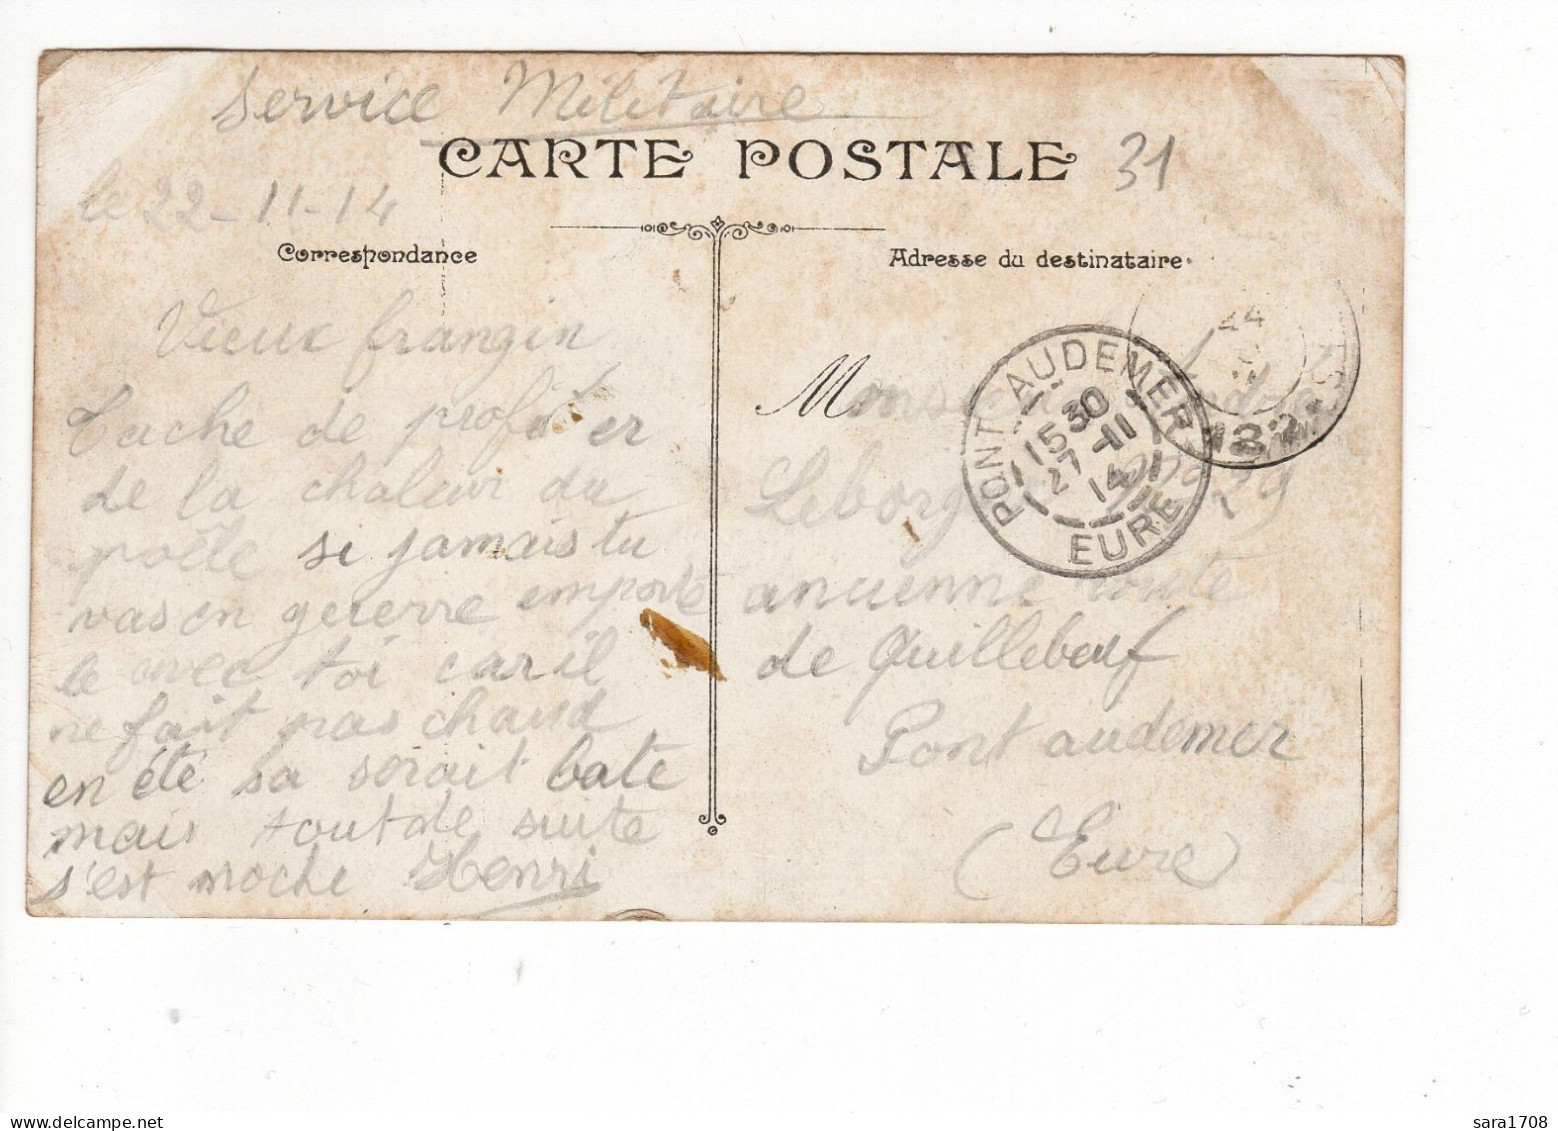 Service Militaire
CARTE POSTALE
31
le 22-11-14
Correspondance
Adresse du destinataire
Vieux frangin
Tache de profiter
de la chaleur du
poêle si jamais tu
vas en guerre emporte
le avec toi car il
ne fait pas chaud
en été sa serait bate
mais tout de suite
s'est moche Henri
Monsieur
Leborg
29
ancienne route
de Quillebeuf
Pont audemer
(Eure)
PONT-AUDEMER
15 30
27-11
14
EURE
24
122
sara1708